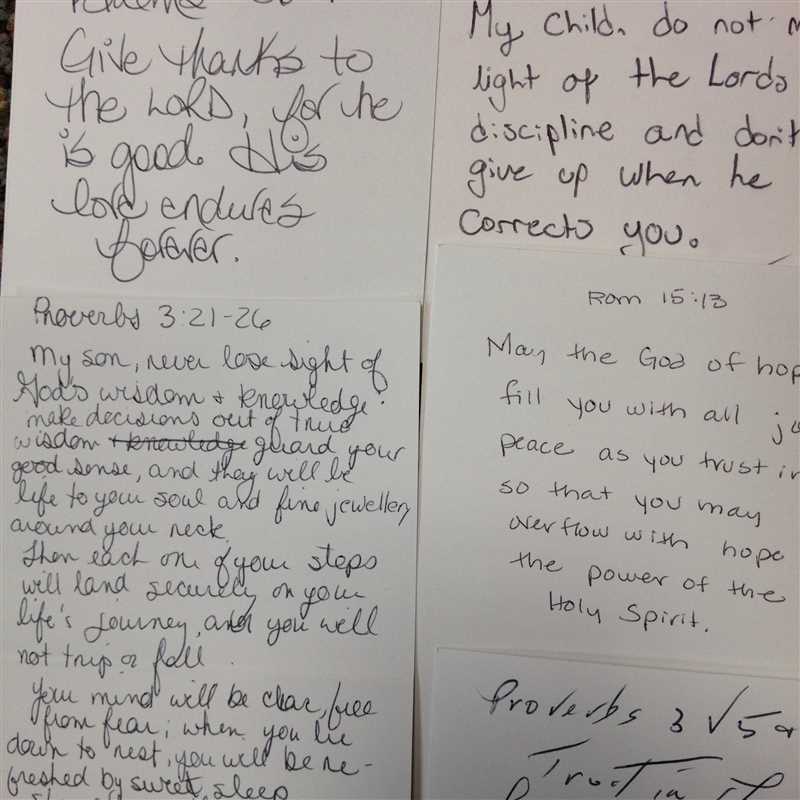 Give thanks to
the LORD, for he
is good. His
love endures
forever.
My Child, do not
light of the Lords
discipline and don't
give up when he
corrects you.
Proverbs 3:21-26
My son, never lose sight of
God's wisdom + knowledge:
make decisions out of true
wisdom + knowledge guard your
good sense, and they will be
life to your soul and fine jewellery
around your neck.
Then each one of your steps
will land securely on your
life's journey, and you will
not trip or fall.
Your mind will be clear, free
from fear; when you lie
down to rest, you will be re-
freshed by sweet sleep
Rom 15:13
May the God of hop
fill you with all jo
peace as you trust in
so that you may
overflow with hope
the power of the
Holy Spirit.
Proverbs 3 √5
Trust in